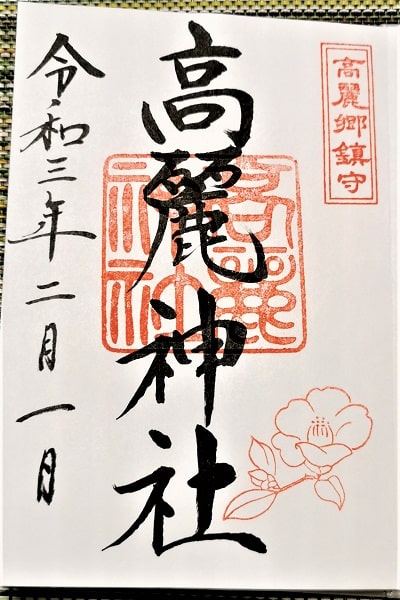 高麗郷鎮守
高麗神社
令和三年二月一日